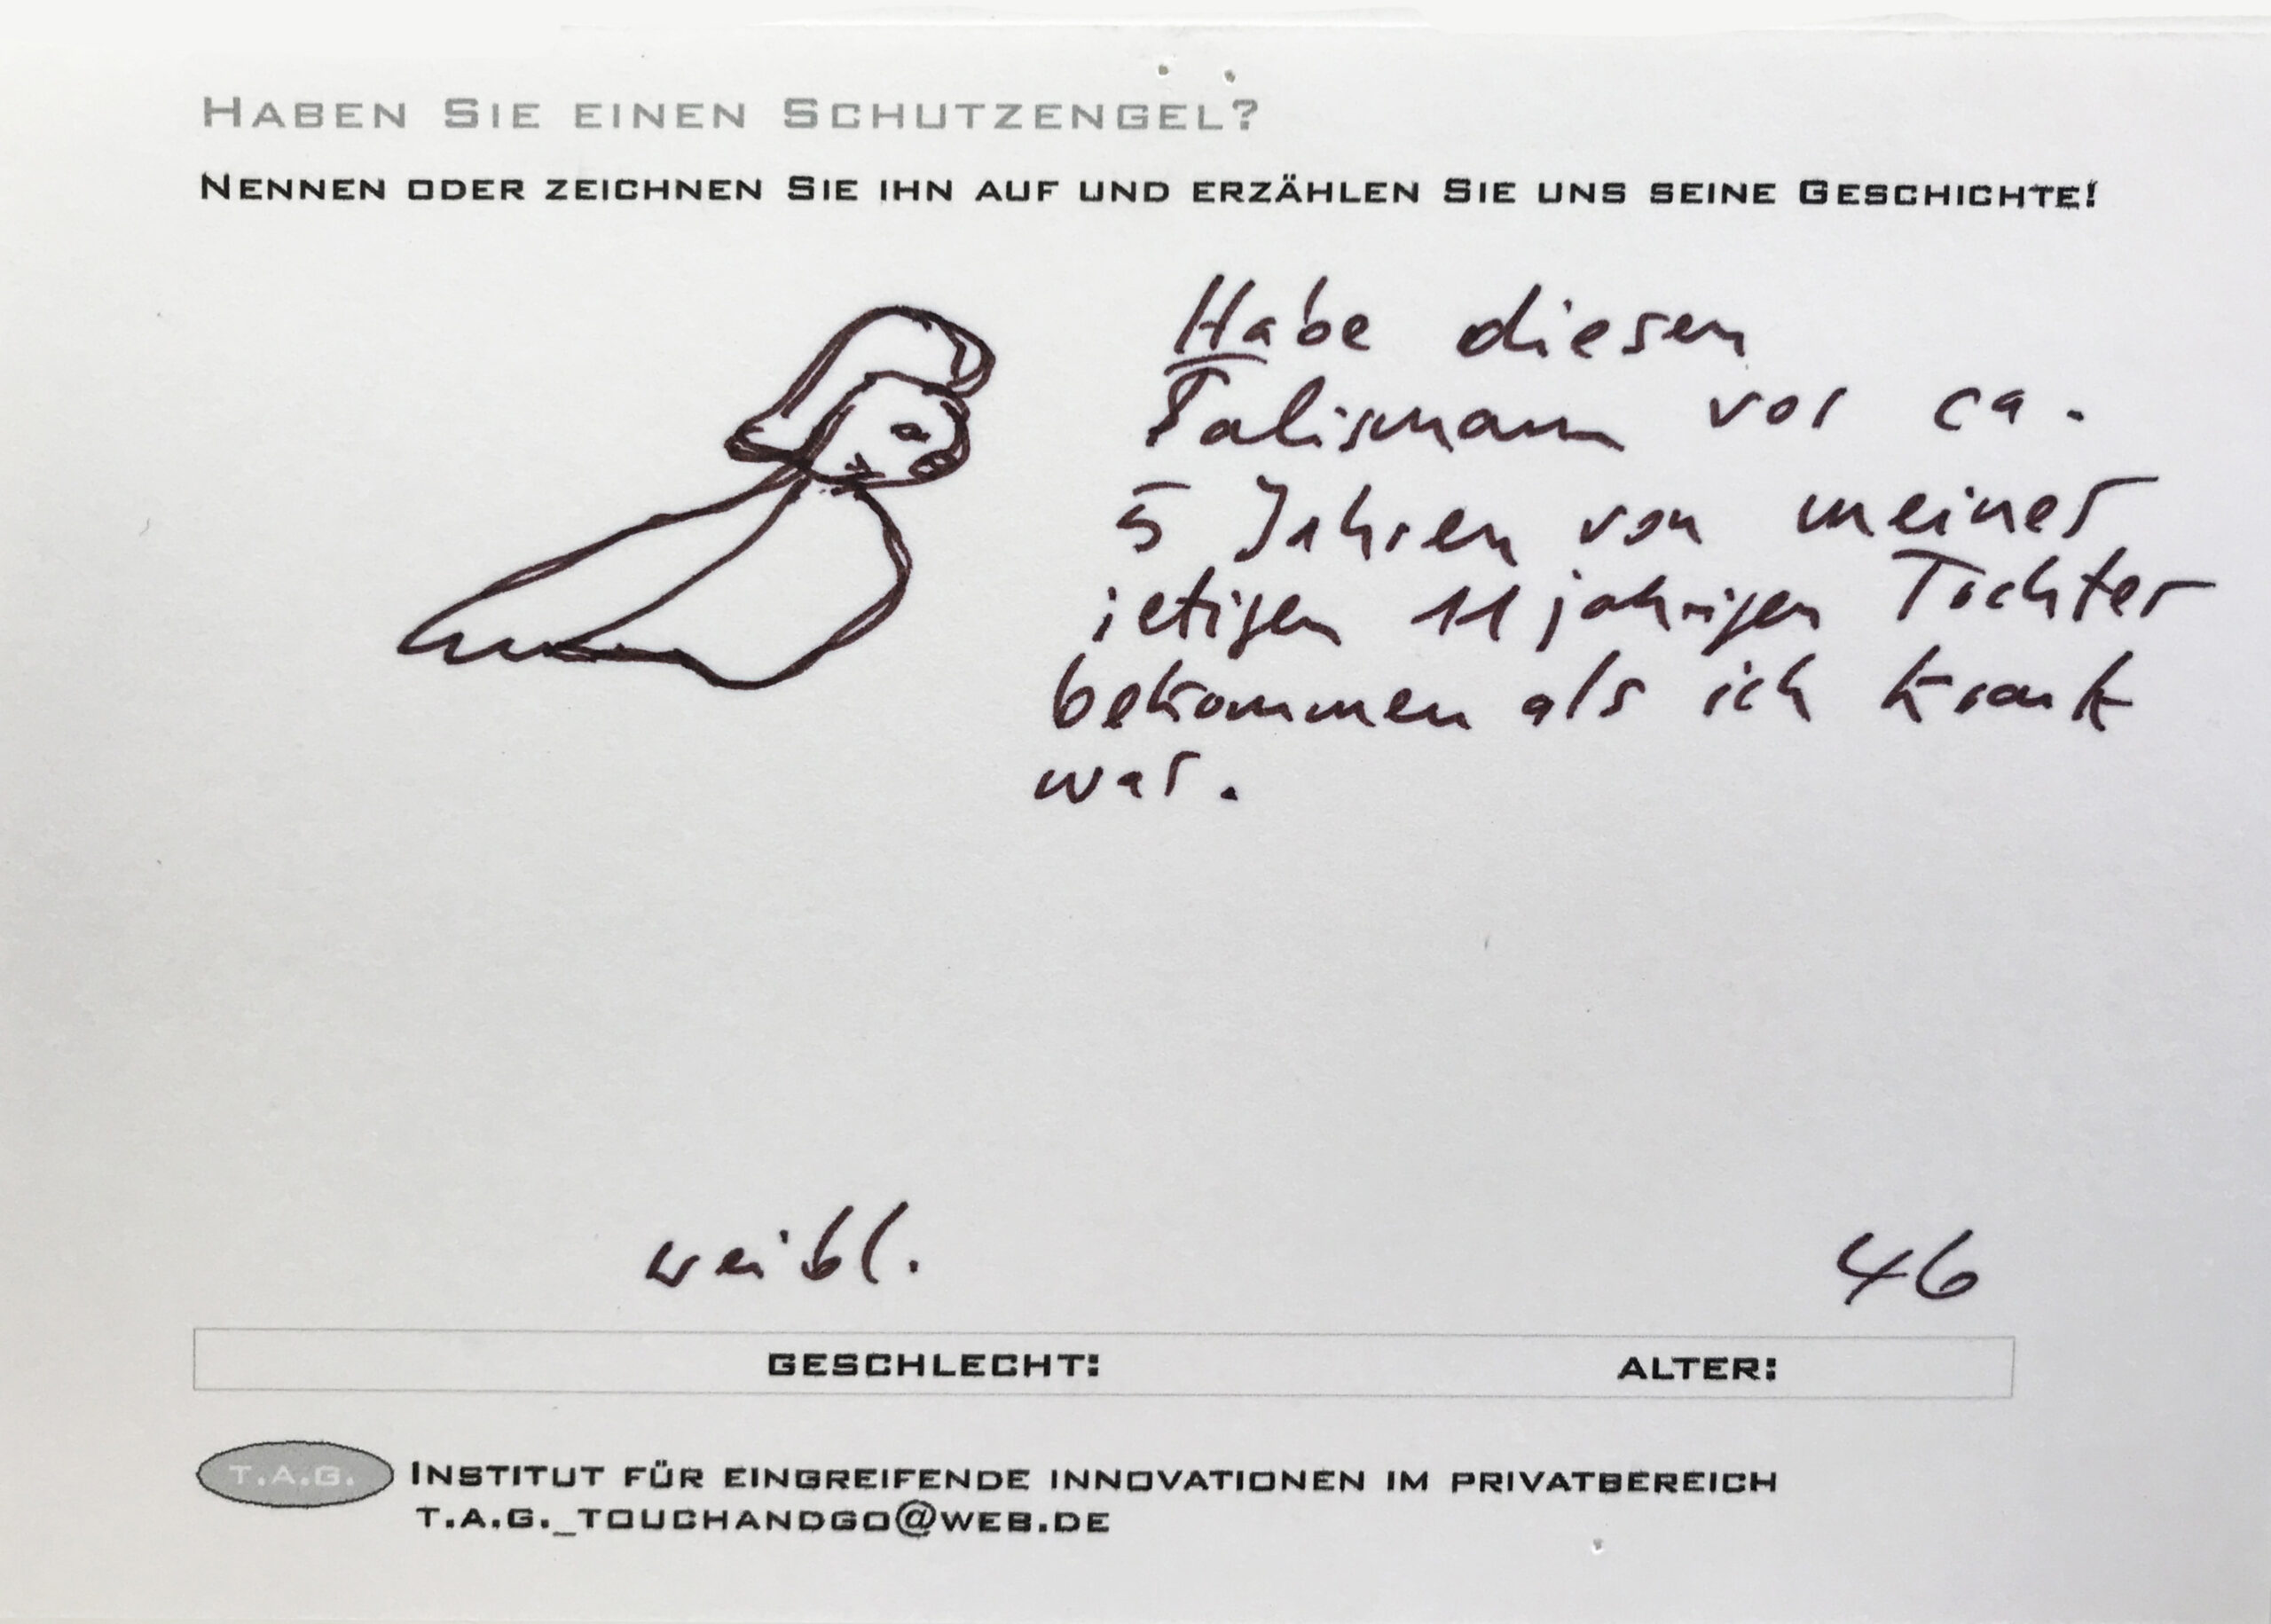 HABEN SIE EINEN SCHUTZENGEL?
NENNEN ODER ZEICHNEN SIE IHN AUF UND ERZÄHLEN SIE UNS SEINE GESCHICHTE!
Habe diesen
Talismann vor ca.
5 Jahren von meiner
ietigen 11 jahrigen Tochter
bekommen als ich krank
war.
weibl. 46
GESCHLECHT: ALTER:
T.A.G. INSTITUT FÜR EINGREIFENDE INNOVATIONEN IM PRIVATBEREICH
T.A.G._TOUCHANDGO@WEB.DE